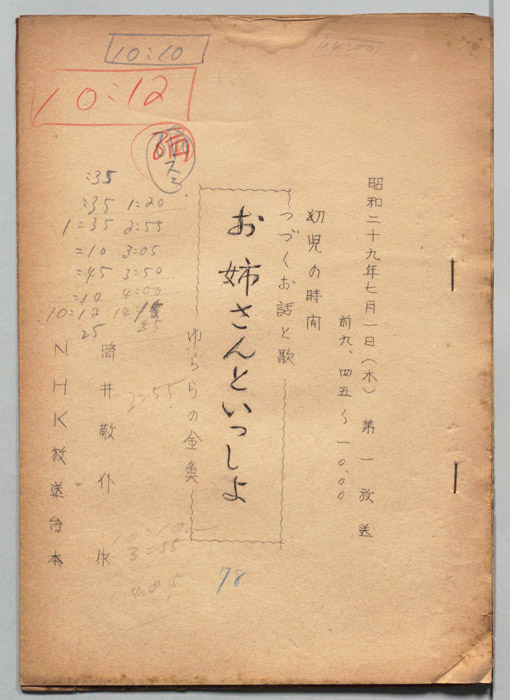 10:10
10:12
14:00
昭和二十九年七月一日(木) 第一放送
前九、四五~一〇、〇〇
幼児の時間
つづくお話と歌
お姉さんといっしよ
ゆららの金魚
筒井敬介 作
NHK放送台本
:35
:35 1:20
1:35 2:55
:10 3:05
:45 3:50
:10 4:00
10:12
25
3:55
3:55
78